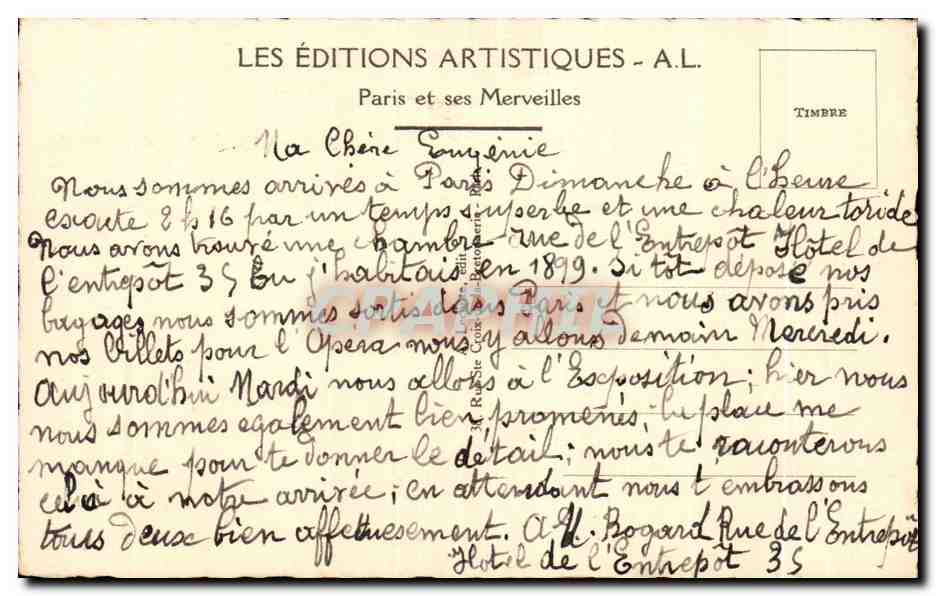 LES ÉDITIONS ARTISTIQUES - A.L.
Paris et ses Merveilles
TIMBRE
Ma Chère Eugénie
Nous sommes arrivés à Paris Dimanche à l'heure
exacte 2 h 16 par un temps superbe et une chaleur toride
Nous avons trouvé une chambre rue de l'Entrepôt Hôtel de
l'entrepôt 35 Ou j'habitais en 1899. Si tôt déposé nos
bagages nous sommes sortis dans Paris et nous avons pris
nos billets pour l'Opéra nous y allons Demain Mercredi.
Aujourd'hui Mardi nous allons à l'Exposition; hier nous
nous sommes également bien promenés; la place me
manque pour te donner le détail; nous te raconterons
cela à notre arrivée; en attendant nous t embrassons
tous deux bien affectuesement. A M. Bogard Rue de l'Entrepôt
Hotel de l'Entrepôt 35
Rue Ste Croix-la-Bretonnerie - Paris